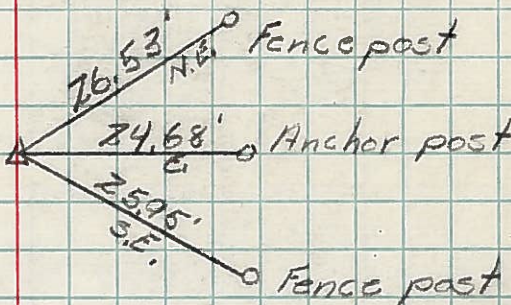 26.53' Fence post
N.E.
24.68' Anchor post
E.
25.95'
S.E.
Fence post